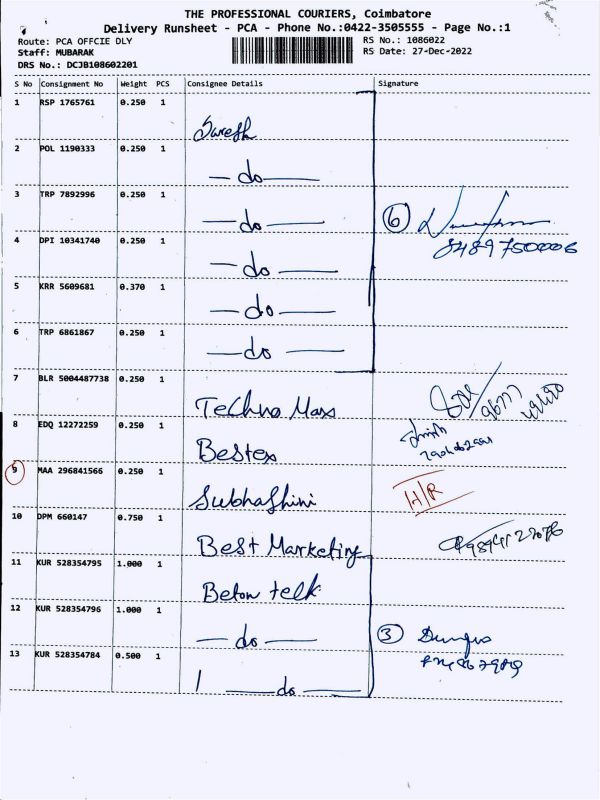 THE PROFESSIONAL COURIERS, Coimbatore
Delivery Runsheet - PCA - Phone No.:0422-3505555 - Page No.:1
Route: PCA OFFCIE DLY
RS No.: 1086022
Staff: MUBARAK
RS Date: 27-Dec-2022
DRS No.: DCJB108602201
S No Consignment No Weight PCS Consignee Details Signature
1 RSP 1765761 0.250 1
Suresh
2 POL 1190333 0.250 1
— do —
3 TRP 7892996 0.250 1
— do —
6
8489750006
4 DPI 10341740 0.250 1
— do —
5 KRR 5609681 0.370 1
— do —
6 TRP 6861867 0.250 1
— do —
7 BLR 5004487738 0.250 1
Techno Mass
8 EDQ 12272259 0.250 1
Bestex
9 MAA 296841566 0.250 1
Subhashini
H/R
10 DPM 660147 0.750 1
Best Marketing
11 KUR 528354795 1.000 1
Beton telk
12 KUR 528354796 1.000 1
— do —
3
13 KUR 528354784 0.500 1
— do —